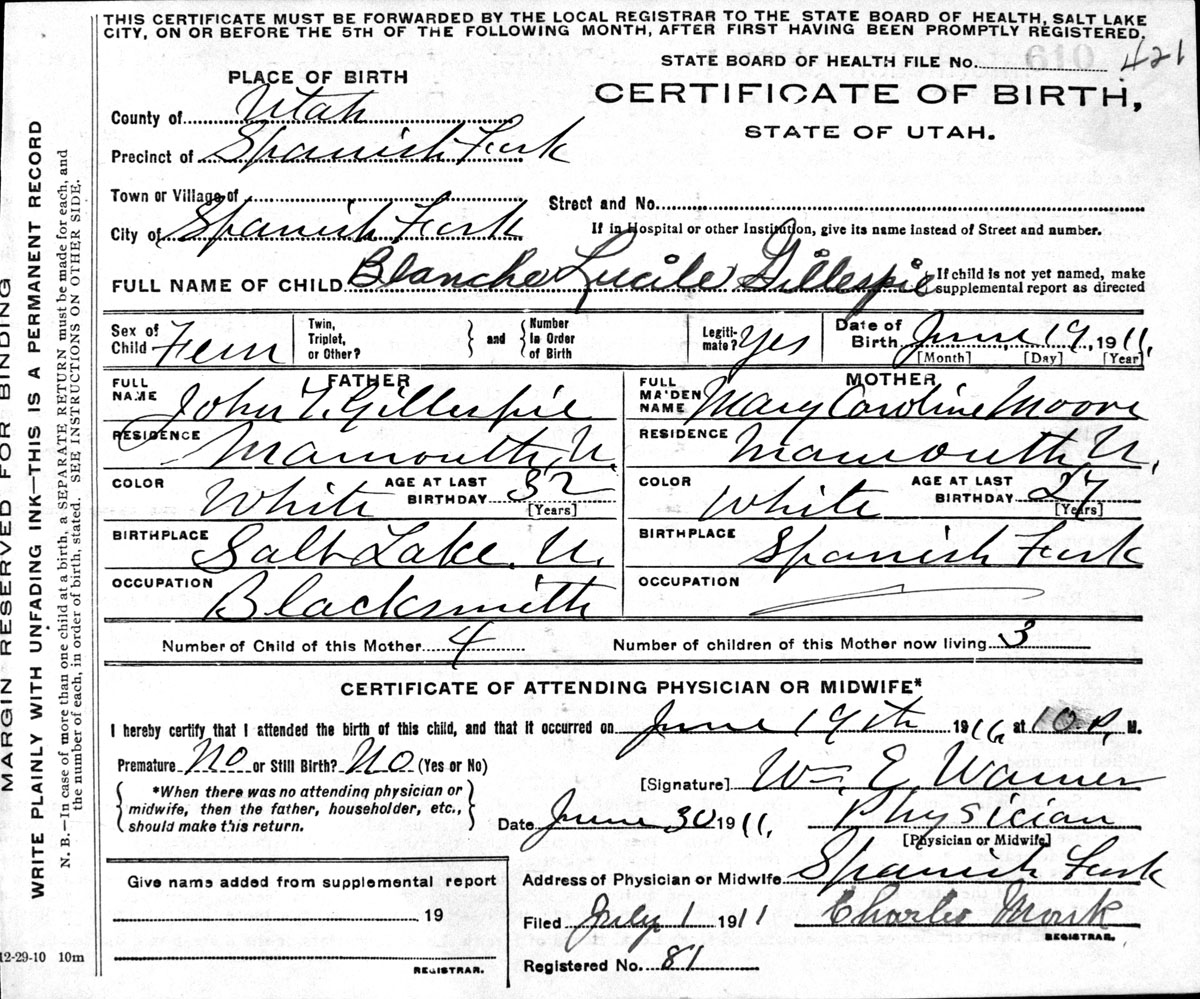 THIS CERTIFICATE MUST BE FORWARDED BY THE LOCAL REGISTRAR TO THE STATE BOARD OF HEALTH, SALT LAKE
CITY, ON OR BEFORE THE 5TH OF THE FOLLOWING MONTH, AFTER FIRST HAVING BEEN PROMPTLY REGISTERED.
STATE BOARD OF HEALTH FILE No. 421
610
PLACE OF BIRTH
CERTIFICATE OF BIRTH,
STATE OF UTAH.
County of Utah
Precinct of Spanish Fork
Town or Village of
Street and No.
City of Spanish Fork
If in Hospital or other Institution, give its name instead of Street and number.
FULL NAME OF CHILD Blanche Lucile Gillespie { If child is not yet named, make
supplemental report as directed
Sex of Child Fem
Twin, Triplet, or Other? } and { Number in Order of Birth
Legitimate? Yes
Date of Birth June 19, 1911,
[Month] [Day] [Year]
FATHER
FULL NAME John T Gillespie
RESIDENCE Mamouth, U.
COLOR White AGE AT LAST BIRTHDAY 32 [Years]
BIRTHPLACE Salt Lake U.
OCCUPATION Blacksmith
MOTHER
FULL MAIDEN NAME Mary Caroline Moore
RESIDENCE Mamouth U,
COLOR White AGE AT LAST BIRTHDAY 27 [Years]
BIRTHPLACE Spanish Fork
OCCUPATION
Number of Child of this Mother 4 Number of children of this Mother now living 3
CERTIFICATE OF ATTENDING PHYSICIAN OR MIDWIFE*
I hereby certify that I attended the birth of this child, and that it occurred on June 19th 1911, at 10 P. M.
Premature No or Still Birth? No (Yes or No)
[Signature] Wm E Warner
{ *When there was no attending physician or
midwife, then the father, householder, etc.,
should make this return. }
Date June 30 1911, Physician
[Physician or Midwife]
Give name added from supplemental report
19
REGISTRAR.
Address of Physician or Midwife Spanish Fork
Filed July 1 1911 Charles Monk
REGISTRAR.
Registered No. 81
12-29-10 10m
MARGIN RESERVED FOR BINDING
WRITE PLAINLY WITH UNFADING INK—THIS IS A PERMANENT RECORD
N. B.—In case of more than one child at a birth, a SEPARATE RETURN must be made for each, and
the number of each, in order of birth, stated. SEE INSTRUCTIONS ON OTHER SIDE.